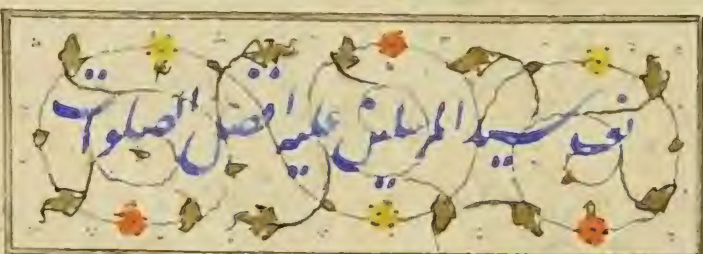 نعت سيد المرسلين عليه افضل الصلوات